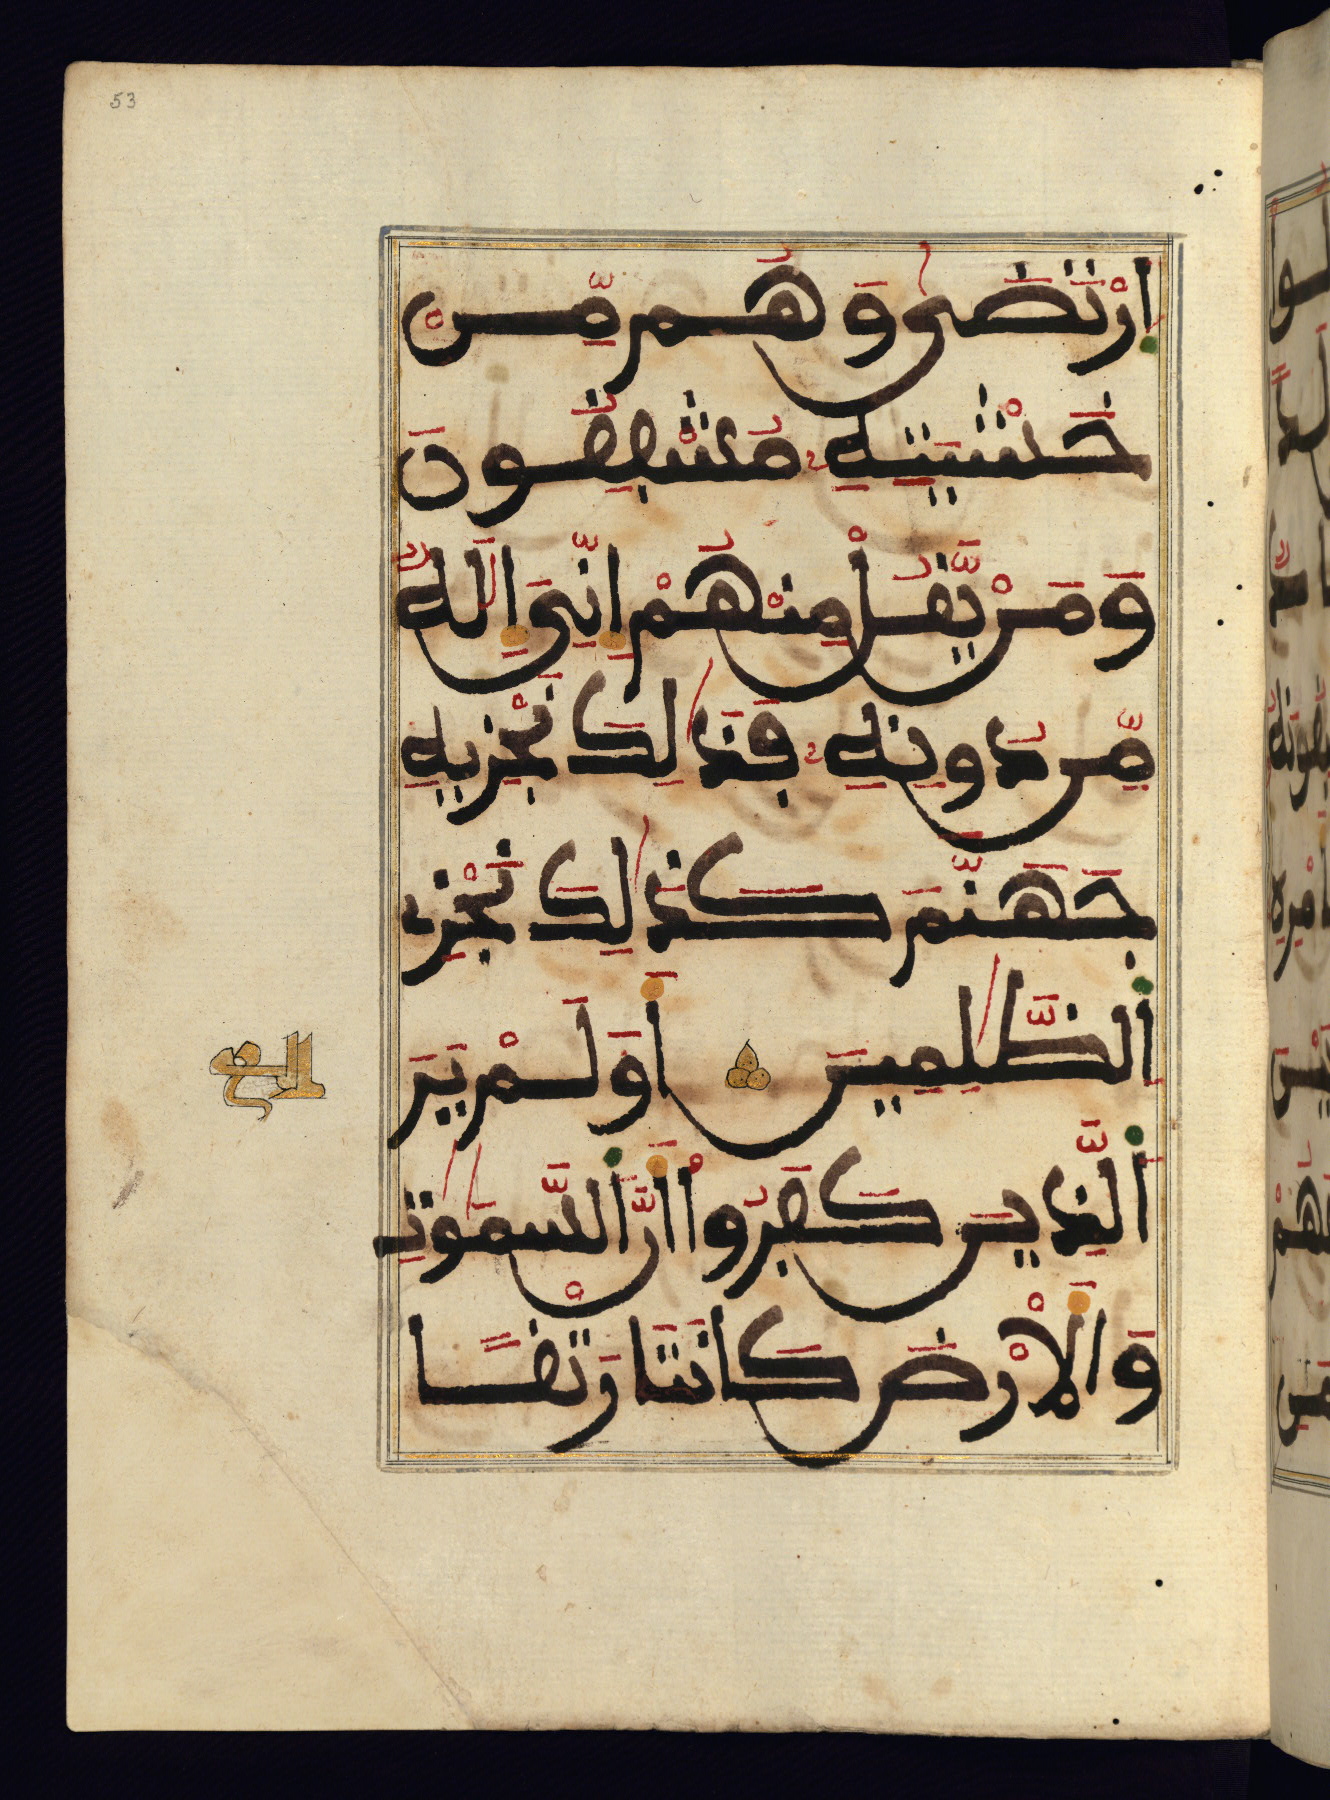 53
اِرْتَضَىٰ وَهُم مِّنْ
خَشْيَتِهِۦ مُشْفِقُونَ
وَمَنْ يَّقُلْ مِنْهُمْ إِنِّيَ إِلَٰهٌ
مِّن دُونِهِۦ فَذَٰلِكَ نَجْزِيهِ
جَهَنَّمَ كَذَٰلِكَ نَجْزِي
اَ۬لظَّٰلِمِينَ أَوَلَمْ يَرَ
اَ۬لَّذِينَ كَفَرُوٓاْ أَنَّ اَ۬لسَّمَٰوَٰتِ
وَالْأَرْضَ كَانَتَا رَتْقاً